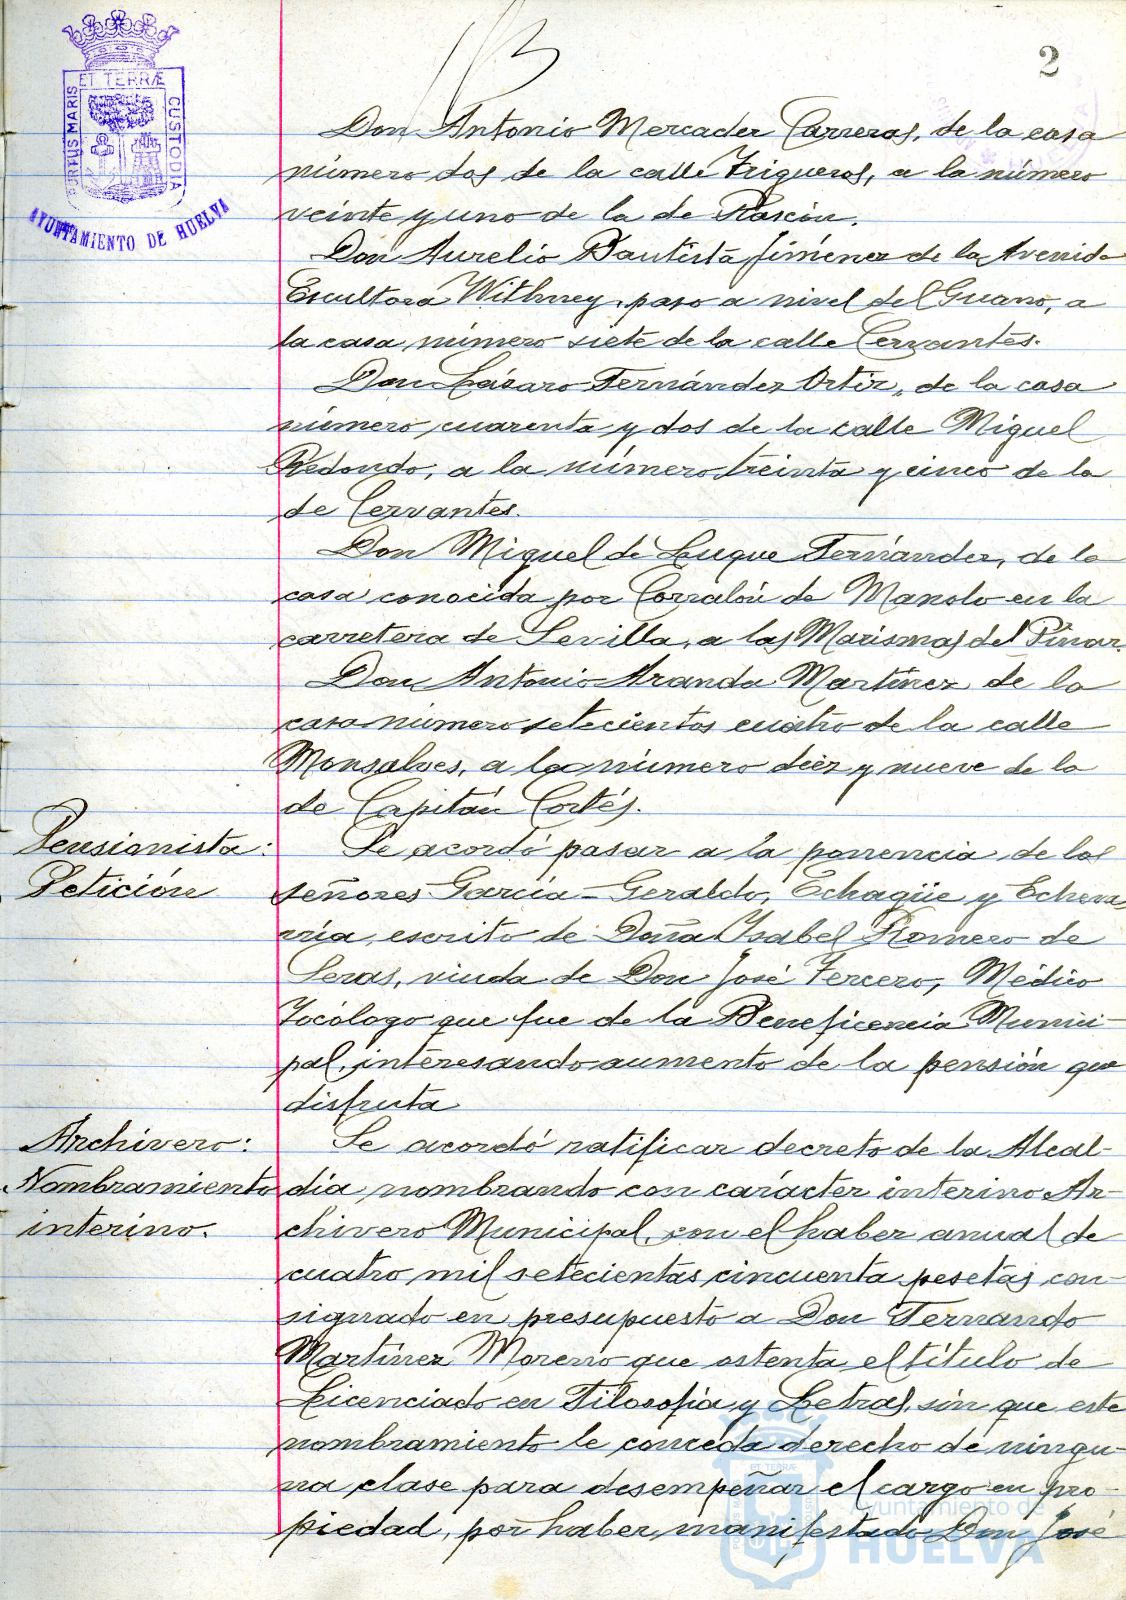 2
PORTUS MARIS
ET TERRÆ
CUSTODIA
AYUNTAMIENTO DE HUELVA
Don Antonio Mercader Carreras, de la casa
número dos de la calle Trigueros, a la número
veinte y uno de la de Rascón.
Don Aurelio Bautista Jiménez de la Avenida
Escultora Withney, paso a nivel del Guano, a
la casa número siete de la calle Cervantes.
Don Lázaro Fernández Ortiz, de la casa
número cuarenta y dos de la calle Miguel
Redondo, a la número treinta y cinco de la
de Cervantes.
Don Miguel de Luque Fernández, de la
casa conocida por Corralón de Manolo en la
carretera de Sevilla, a las Marismas del Pinar.
Don Antonio Aranda Martínez de la
casa número setecientos cuatro de la calle
Monsalves, a la número diez y nueve de la
de Capitán Cortés.
Pensionista:
Petición
Se acordó pasar a la ponencia de los
señores García-Geraldo, Echagüe y Echeva
rría, escrito de Doña Ysabel Romero de
Seras, viuda de Don José Tercero, Médico
Tocólogo que fue de la Beneficencia Munici-
pal, interesando aumento de la pensión que
disfruta
Archivero:
Nombramiento
interino.
Se acordó ratificar decreto de la Alcal-
día nombrando con carácter interino Ar-
chivero Municipal, con el haber anual de
cuatro mil setecientas cincuenta pesetas con-
signado en presupuesto a Don Fernando
Martínez Moreno que ostenta el título de
Licenciado en Filosofía y Letras, sin que este
nombramiento le conceda derecho de ningu-
na clase para desempeñar el cargo en pro-
piedad, por haber manifestado Don José
Ayuntamiento de
HUELVA